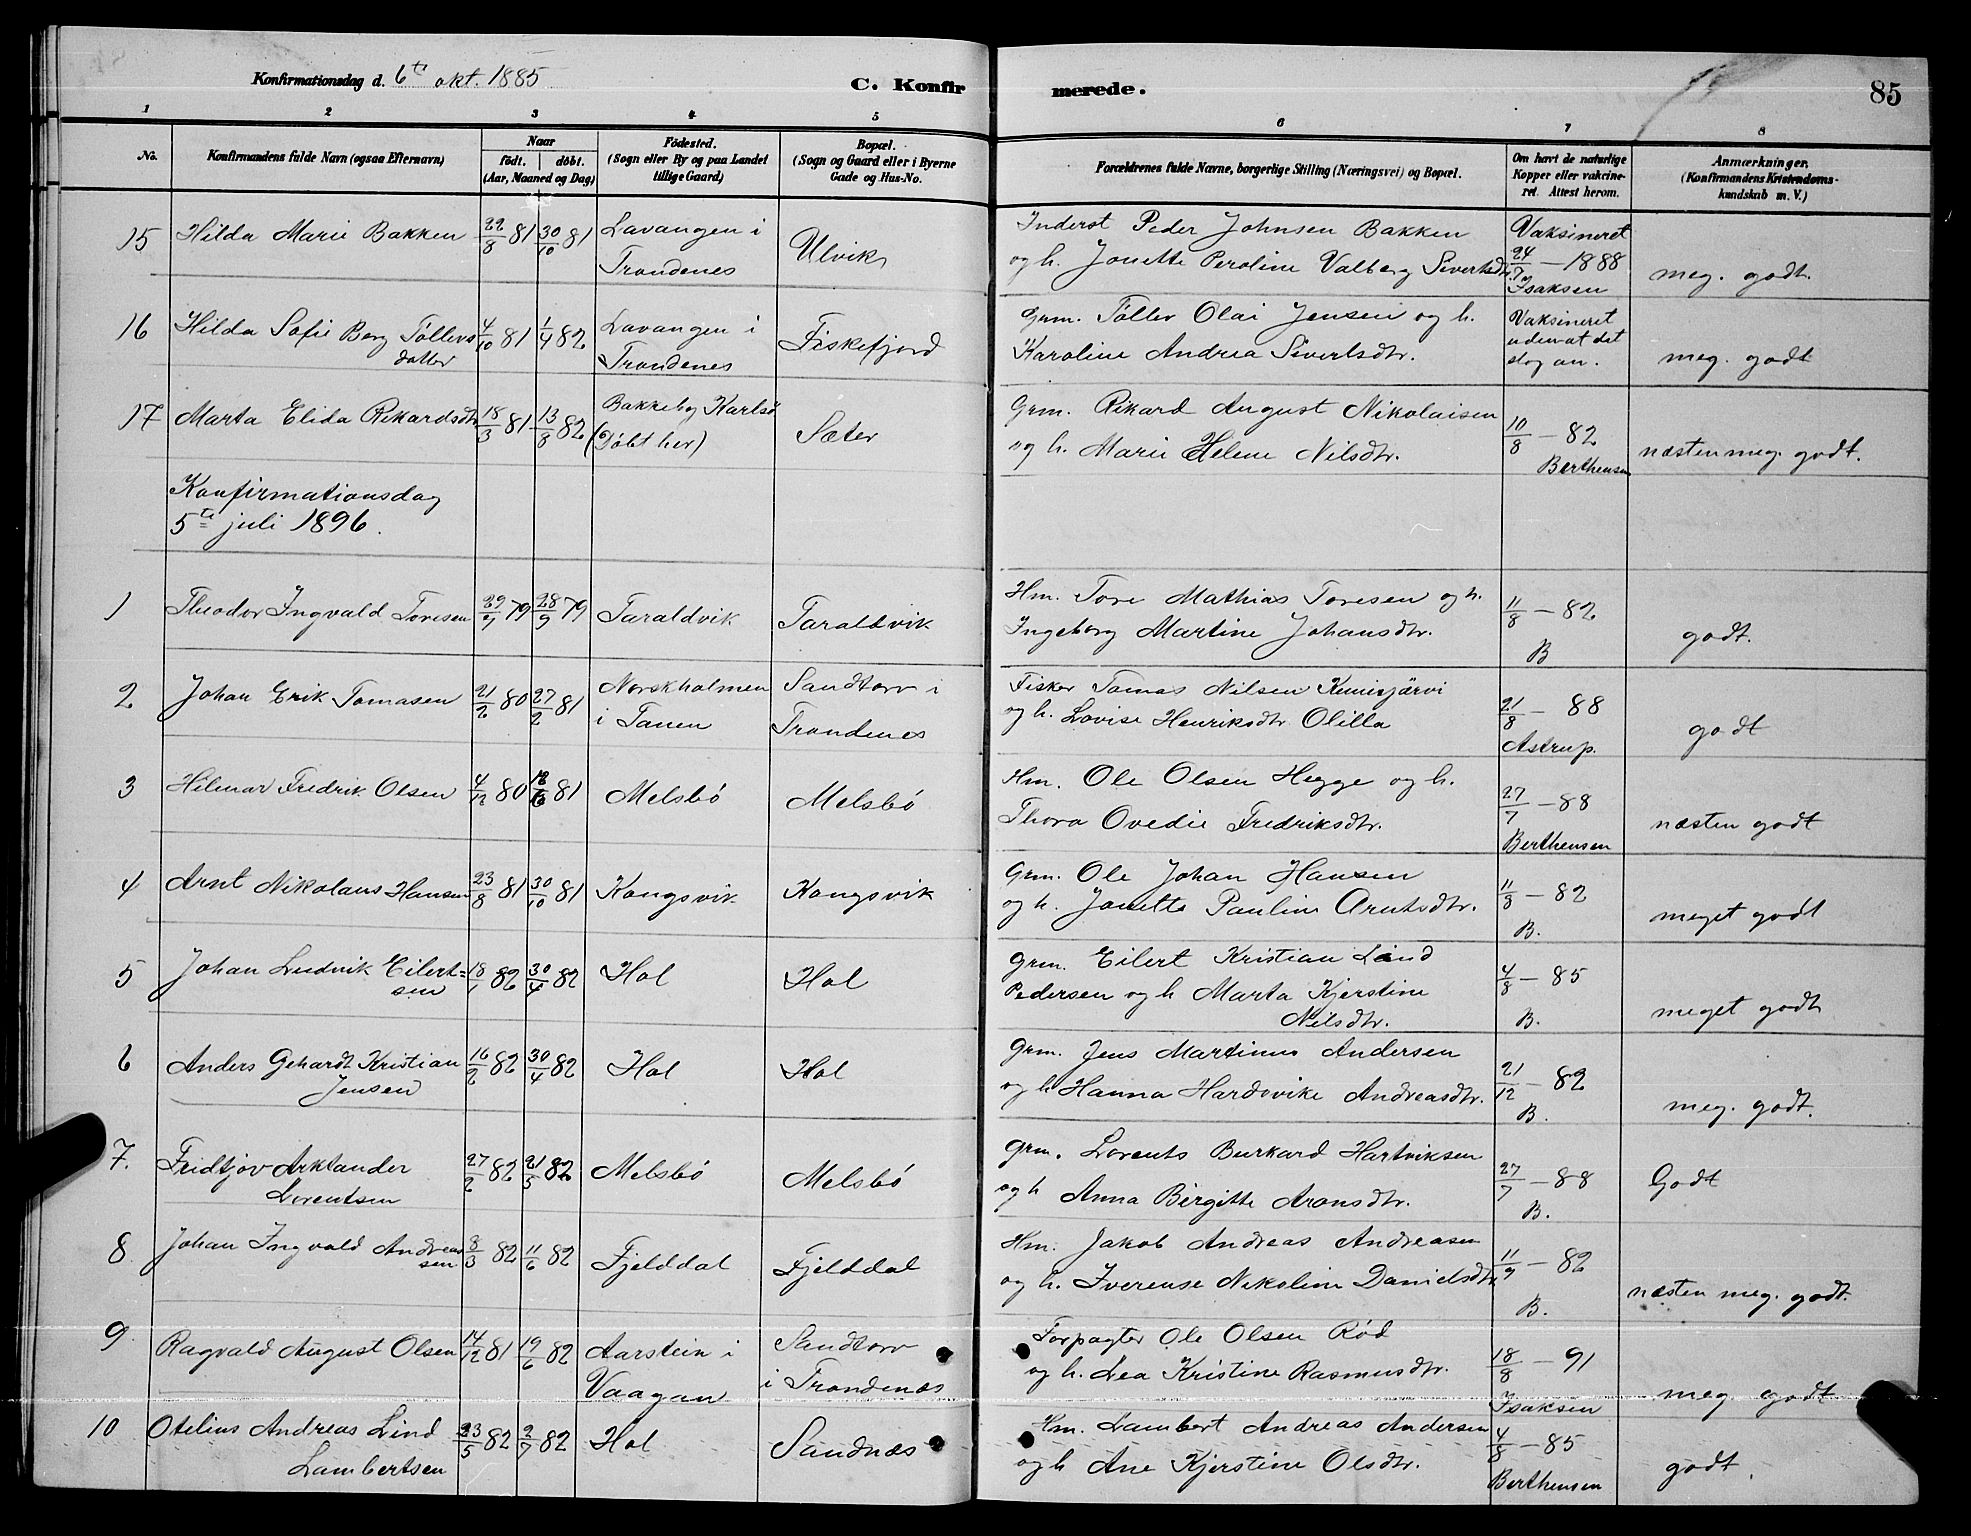 Konfirmationsdag d. 6te okt. 1885
C. Konfirmerede.
85
1 2 3 4 5 6 7 8
No.
Konfirmandens fulde Navn (ogsaa Efternavn)
Naar
født. døbt.
(Aar, Maaned og Dag)
Fødested.
(Sogn eller By og paa Landet
tillige Gaard)
Bopæl.
(Sogn og Gaard eller i Byerne
Gade og Hus-No.
Forældrenes fulde Navne, borgerlige Stilling (Næringsvei) og Bopæl.
Om havt de naturlige
Kopper eller vakcine-
ret. Attest herom.
Anmærkninger.
(Konfirmandens Kristendoms-
kundskab m. V.)
15 Hilda Marie Bakken 22/8 81 30/10 81 Lavangen i Trondenes Ulvik Inderst Peder Johnsen Bakken
og h. Jonette Peroline Valberg Sivertsdtr. Vaksineret 24/7 - 1888 Isaksen meg. godt.
16 Hilda Sofie Berg Tøllevsdatter 4/10 81 1/4 82 Lavangen i Trondenes Fiskefjord Grm. Tøllev Olai Jensen og h.
Karoline Andrea Sivertsdtr. Vaksineret uden at det slog an. meg. godt
17 Marta Elida Rikardsdtr 18/3 81 13/8 82 Bakkeby Karlsø (Døbt her) Sæter Grm. Rikard August Nikolaisen
og h. Marie Helene Nilsdtr. 10/8 - 82 Berthensen næsten meg. godt.
Konfirmationsdag
5te juli 1896.
1 Theodor Ingvald Toresen 29/7 79 28/9 79 Taraldvik Taraldvik Hm. Tore Mathias Toresen og h.
Ingeborg Martine Johansdtr. 11/8 - 82 B godt.
2 Johan Erik Tomasen 21/2 80 27/2 81 Norskholmen i Tanen Sandtorv i Trondenes Fisker Tomas Nilsen Kemijärvi
og h. Lovise Henriksdtr. Olilla 21/8 - 88 Astrup. godt
3 Hilmar Fredrik Olsen 4/12 80 81 Melsbø Melsbø Hm. Ole Olsen Hegge og h.
Thora Ovedie Fredriksdtr. 27/7 - 88 Berthensen næsten godt
4 Arnt Nikolaus Hansen 23/8 81 30/10 81 Kongsvik Kongsvik Grm. Ole Johan Hansen
og h. Jonette Pauline Arntsdtr. 11/8 - 82 B. meget godt
5 Johan Ludvik Eilert=sen 18/1 82 30/4 82 Hol Hol Grm. Eilert Kristian Lind
Pedersen og h Marta Kjerstine
Nilsdtr. 4/8 - 85 B. meget godt
6 Anders Gehardt Kristian Jensen 16/2 82 30/4 82 Hol Hol Grm. Jens Martinus Andersen
og h. Hanna Hardovike Andreasdtr. 21/12 - 82 B. meg. godt.
7. Fridtjov Arktander Lorentsen 27/2 82 21/5 82 Melsbø Melsbø Grm. Lorents Burkard Hartviksen
og h Anna Birgitte Aronsdtr. 27/7 - 88 B. Godt
8. Johan Ingvald Andreassen 3/3 82 11/6 82 Fjelddal Fjelddal Hm. Jakob Andreas Andreasen
og h. Iverense Nikoline Danielsdtr 11/9 - 82 B. næsten meg. godt.
9. Ragvald August Olsen 14/12 81 19/6 82 Aarstein i Vaagan Sandtorv i Trondenæs Forpagter Ole Olsen Rød
og h. Lea Kristine Rasmusdtr. 18/8 - 91 Isaksen meg godt
10 Otelius Andreas Lind Lambertsen 23/5 82 2/7 82 Hol Sandnæs Hm. Lambert Andreas Andersen
og h Ane Kjerstine Olsdtr. 4/8 - 85 Berthensen godt.